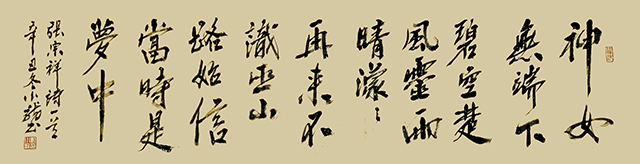 神女
無端下
碧空楚
風靈雨
晴濛〻
再來不
識巫山
路始信
當時是
夢中
張宗祥詩一首
辛丑冬小書